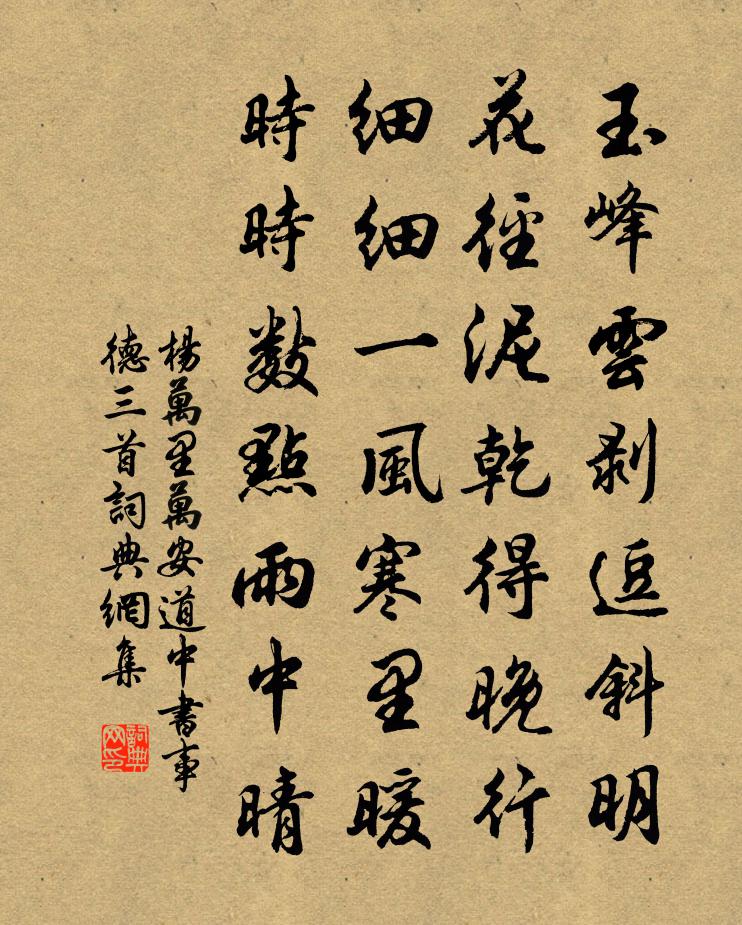 玉峰雲剥逗斜明
花徑泥乾得晚行
細細一風寒里暖
時時数點雨中晴
楊萬里萬安道中書事
德三首詞典網集
詞典网印